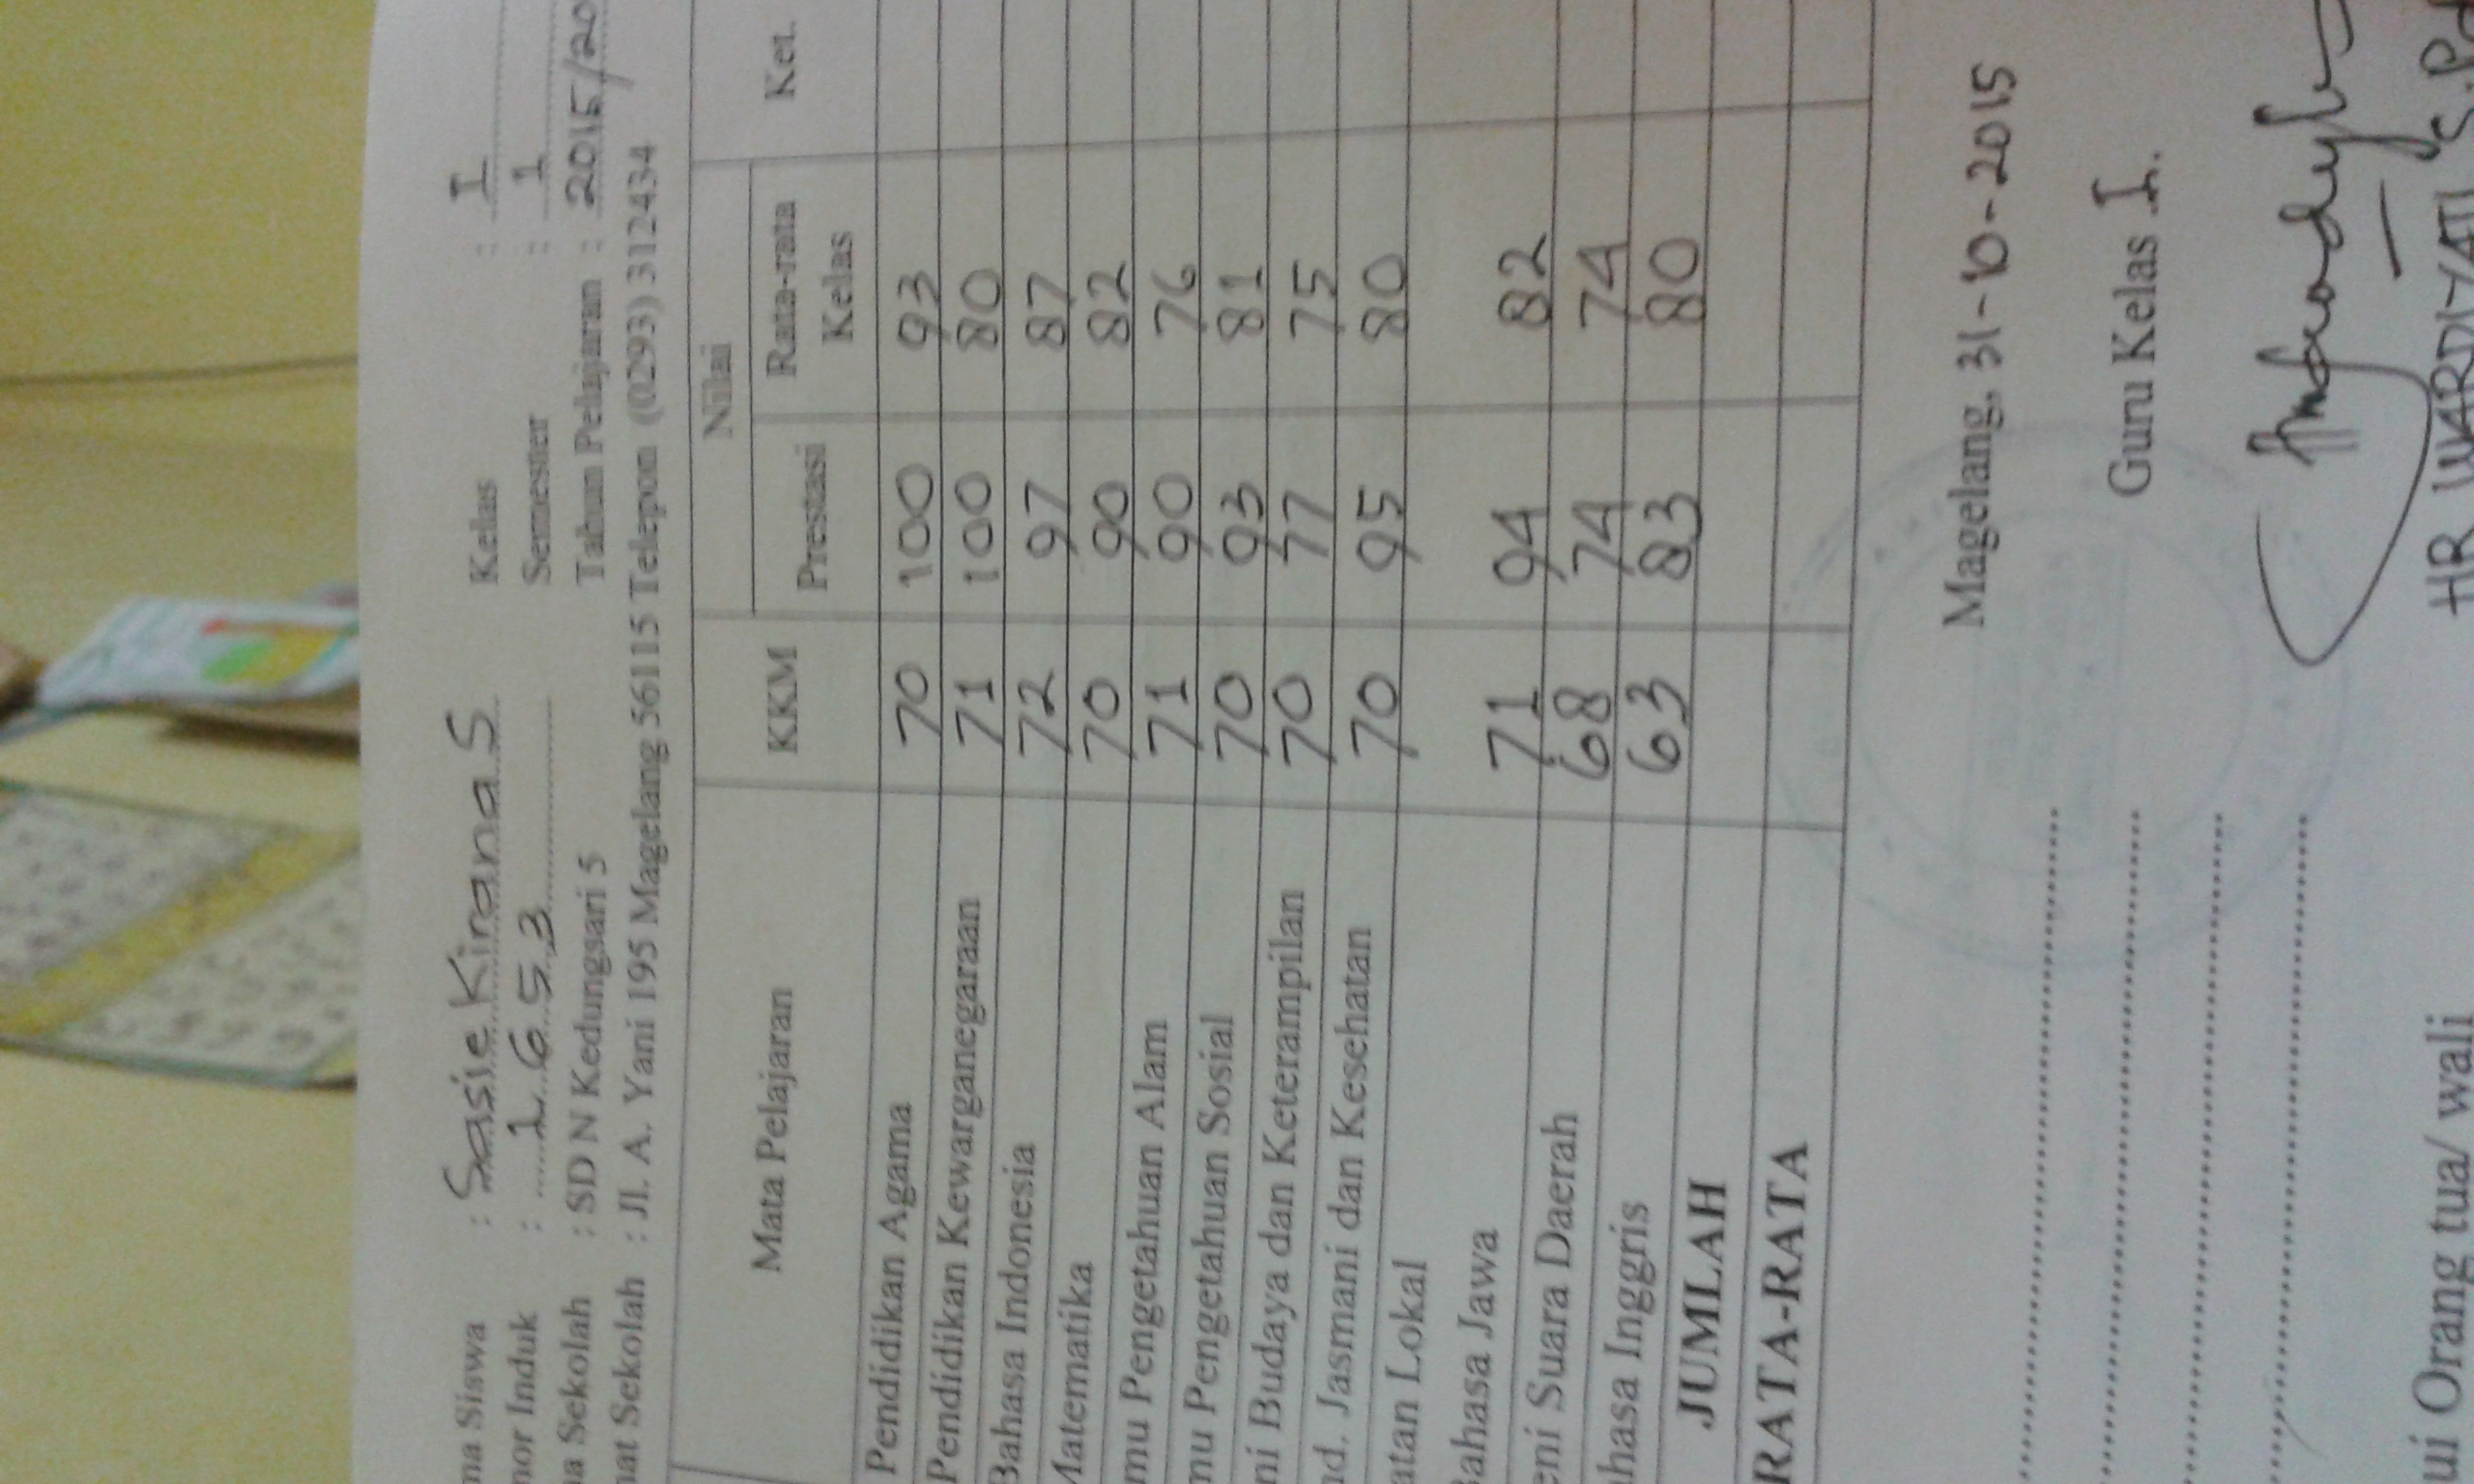 ma Siswa : Sasie Kirana S Kelas : I
mor Induk : 1653 Semester : 1
a Sekolah : SD N Kedungsari 5 Tahun Pelajaran : 2015/20
mat Sekolah : Jl. A. Yani 195 Magelang 56115 Telepon (0293) 312434
Mata Pelajaran KKM Nilai Ket.
Prestasi Rata-rata Kelas
Pendidikan Agama 70 100 93
Pendidikan Kewarganegaraan 71 100 80
Bahasa Indonesia 72 97 87
Matematika 70 90 82
mu Pengetahuan Alam 71 90 76
mu Pengetahuan Sosial 70 93 81
ni Budaya dan Keterampilan 70 77 75
nd. Jasmani dan Kesehatan 70 95 80
atan Lokal
Bahasa Jawa 71 94 82
eni Suara Daerah 68 74 74
ahasa Inggris 63 83 80
JUMLAH
RATA-RATA
Magelang, 31-10-2015
Guru Kelas I.
ui Orang tua/ wali
HR WARDIYATI S.Pd